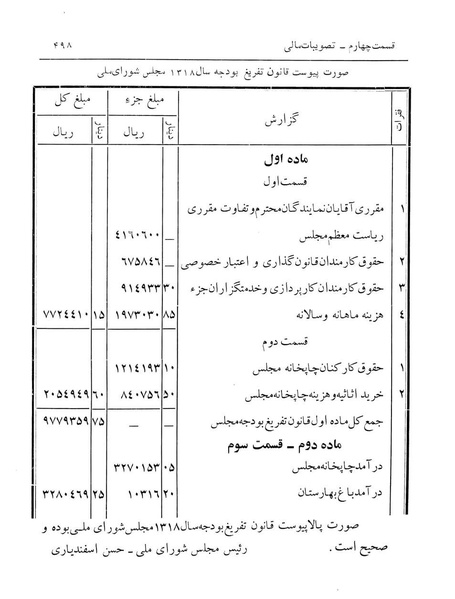 قسمت چهارم ــ تصویبات مالی ۴۹۸
صورت پیوست قانون تفریغ بودجه سال ۱۳۱۸ مجلس شورای ملی
فقرات گزارش مبلغ جزء مبلغ کل
دینار ریال دینار ریال
ماده اول
قسمت اول
۱ مقرری آقایان نمایندگان محترم و تفاوت مقرری
ریاست معظم مجلس — ۴۱۶۰۶۰۰
۲ حقوق کارمندان قانون گذاری و اعتبار خصوصی — ۶۷۵۸۴۶
۳ حقوق کارمندان کارپردازی و خدمتگزاران جزء ۳۰ ۹۱۴۹۳۳
۴ هزینه ماهانه و سالانه ۸۵ ۱۹۷۳۰۳۰ ۱۵ ۷۷۲۴۴۱۰
قسمت دوم
۱ حقوق کارکنان چاپخانه مجلس ۱۰ ۱۲۱۴۱۹۳
۲ خرید اثاثیه و هزینه چاپخانه مجلس ۵۰ ۸۴۰۷۵۶ ۶۰ ۲۰۵۴۹۴۹
جمع کل ماده اول قانون تفریغ بودجه مجلس — — ۷۵ ۹۷۷۹۳۵۹
ماده دوم ــ قسمت سوم
درآمد چاپخانه مجلس ۰۵ ۳۲۷۰۱۵۳
درآمد باغ بهارستان ۲۰ ۱۰۳۱۶ ۲۵ ۳۲۸۰۴۶۹
صورت بالا پیوست قانون تفریغ بودجه سال ۱۳۱۸ مجلس شورای ملی بوده و
صحیح است . رئیس مجلس شورای ملی ــ حسن اسفندیاری